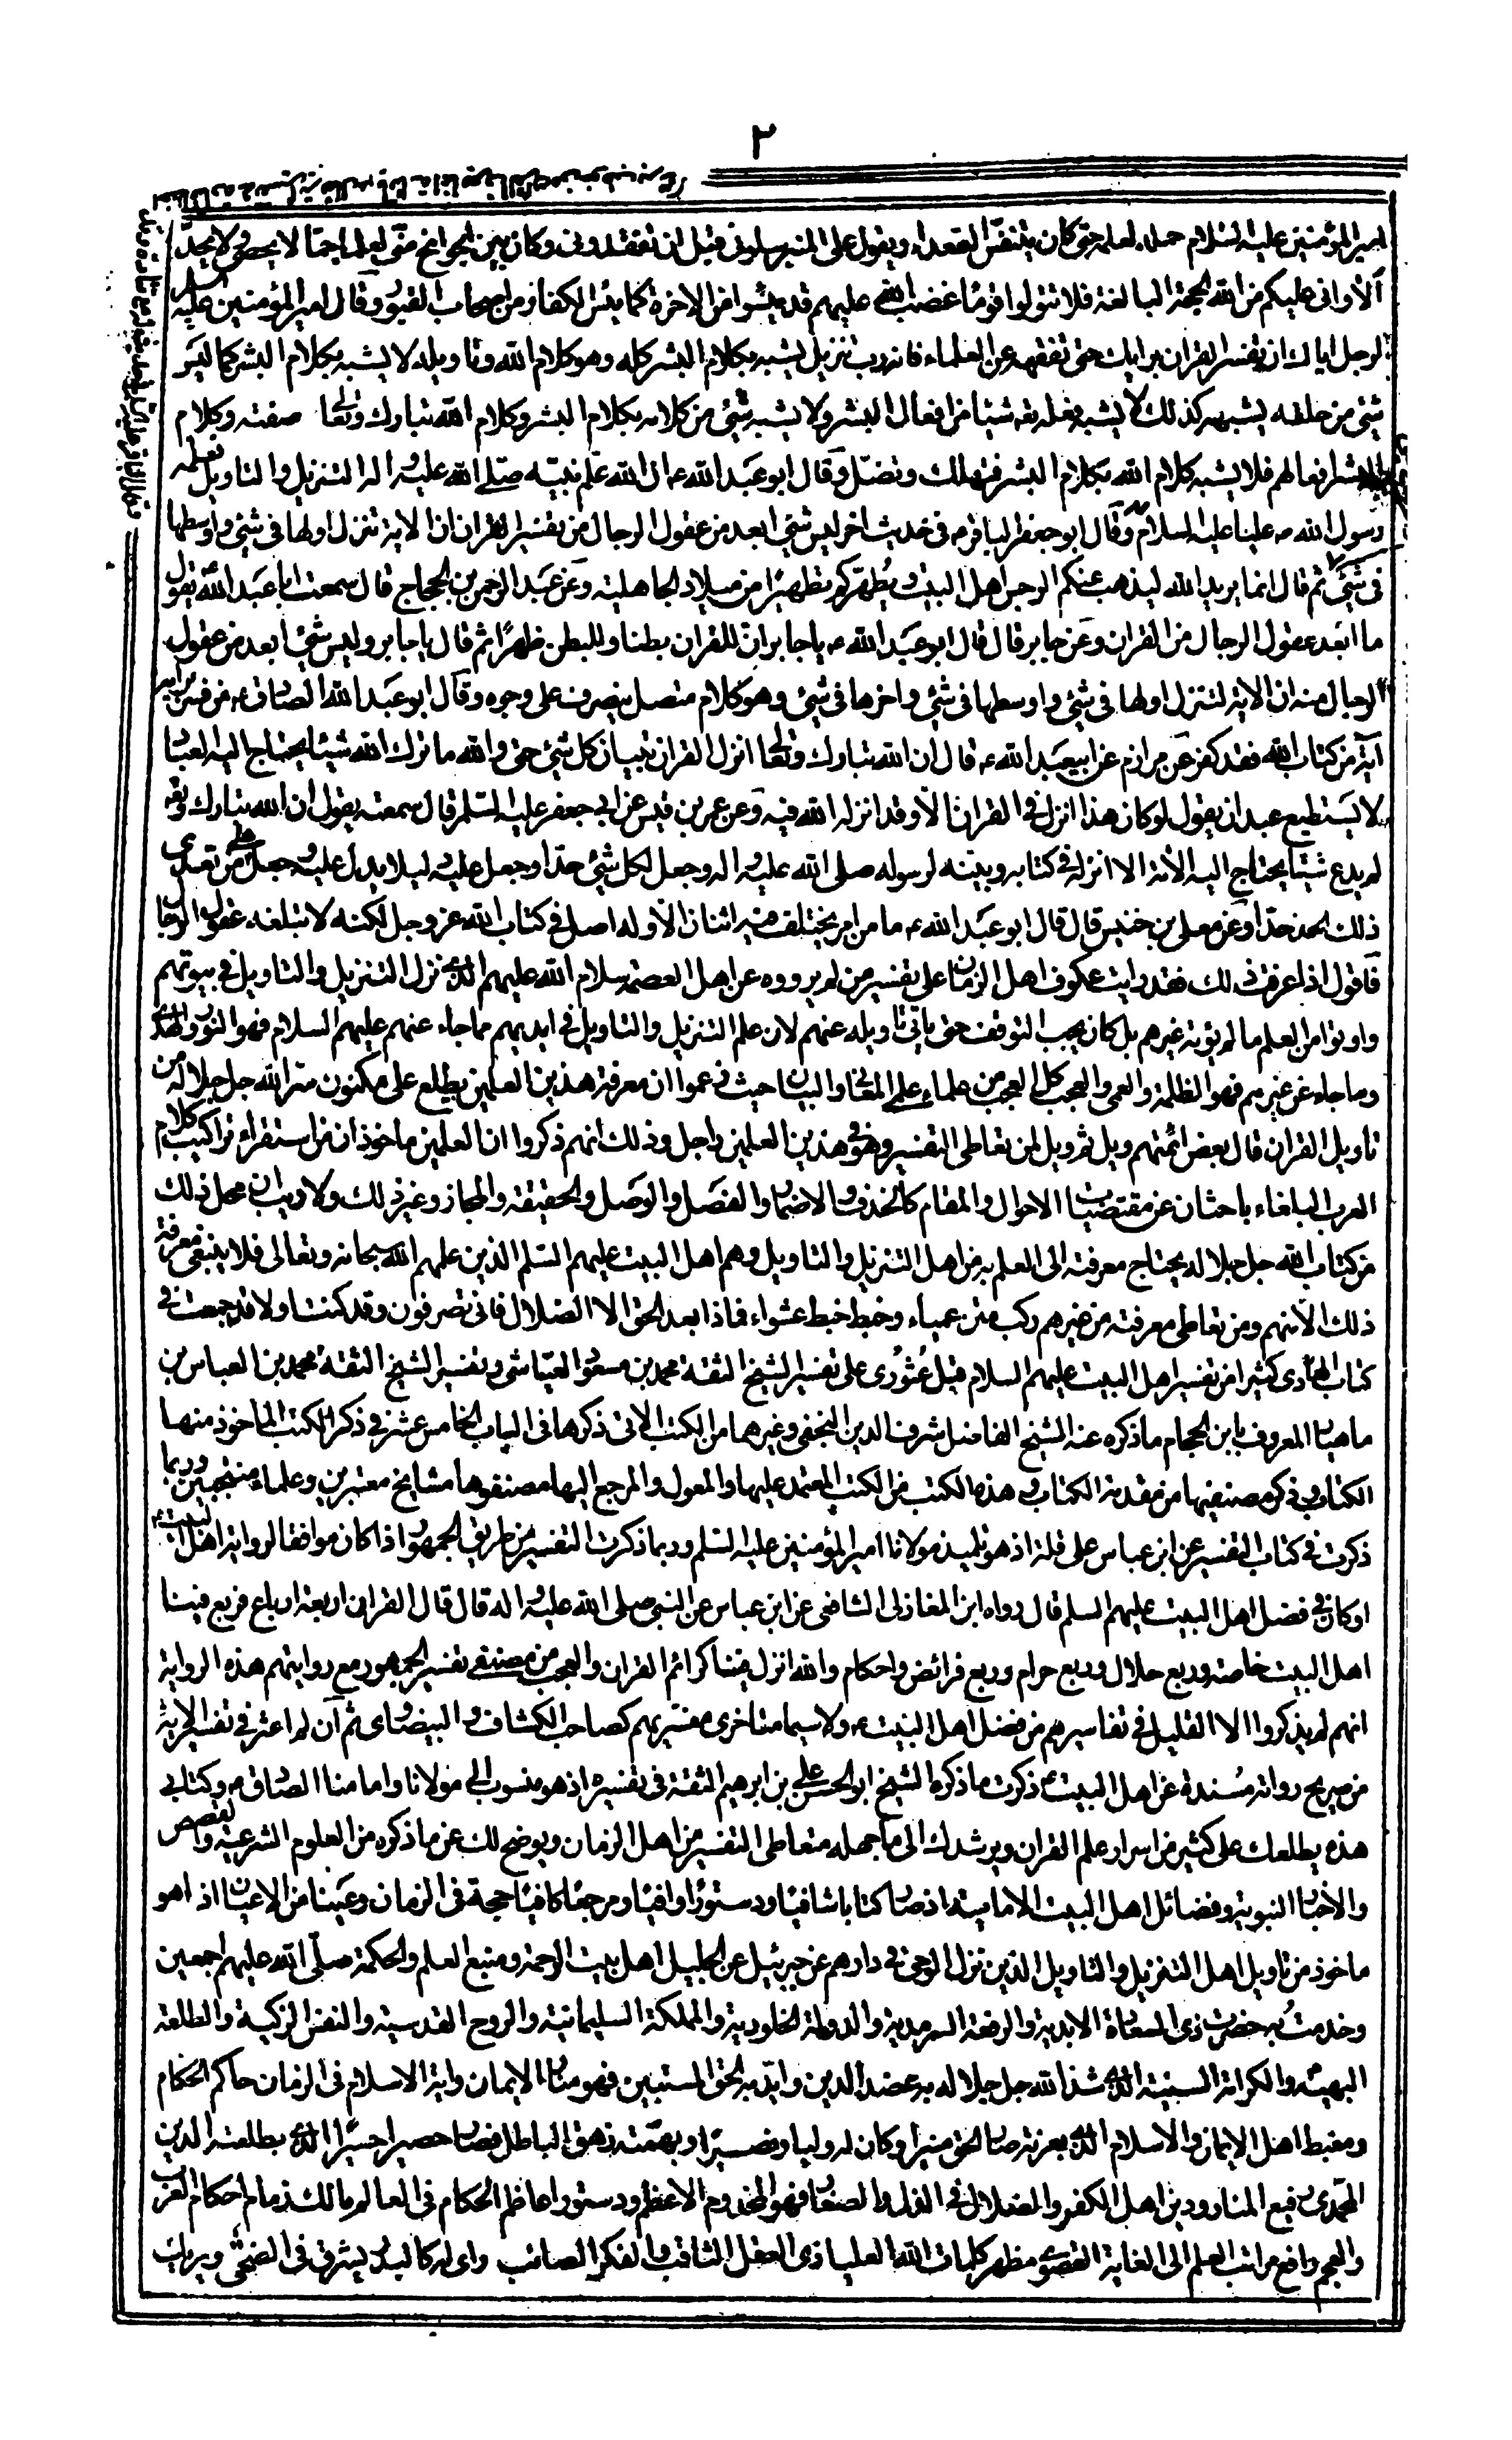 ٢
امير المؤمنين عليه السلام حملة لعلمه حتى كان يتنفس الصعداء ويقول على المنبر سلوني قبل ان تفقدوني وكان بين الجوانح منى لعلما جما لا يحصى ولا يحد
ألا وانى عليكم من الله الحجة البالغة فلا تتولوا قوما غضب الله عليهم قد يئسوا من الاخرة كما يئس الكفار من اصحاب القبور وقال امير المؤمنين عليه السلام
لرجل اياك ان تفسر القران برايك حتى تفقهه عن العلماء فانه رب تنزيل يشبه بكلام البشر كله وهو كلام الله وتاويله لا يشبه بكلام البشر كما ليس
شئ من خلقه يشبهه كذلك لا يشبه فعله تعه شيئا من افعال البشر ولا يشبه شئ من كلامه بكلام البشر وكلام الله تبارك وتعالى صفته وكلام
البشر افعالهم فلا يشبه كلام الله بكلام البشر فتهلك وتضل وقال ابو عبد الله ع ان الله علم نبيه صلى الله عليه واله التنزيل والتاويل فعلمه
رسول الله ص عليا عليه السلام وقال ابو جعفر الباقر ع فى حديث اخر ليس شئ ابعد من عقول الرجال من تفسير القران ان الاية تنزل اولها فى شئ واوسطها
فى شئ ثم قال انما يريد الله ليذهب عنكم الرجس اهل البيت ويطهركم تطهيرا من ميلاد الجاهلية وعن عبد الرحمن بن الحجاج قال سمعت ابا عبد الله يقول
ما ابعد عقول الرجال من القران وعن جابر قال قال ابو عبد الله ع يا جابر ان للقران بطنا وللبطن ظهرا ثم قال يا جابر وليس شئ ابعد من عقول
الرجال منه ان الاية لتنزل اولها فى شئ واوسطها فى شئ واخرها فى شئ وهو كلام متصل يتصرف على وجوه وقال ابو عبد الله الصادق ع من فسر برايه
آية من كتاب الله فقد كفر عن مرازم عن ابيعبد الله ع قال ان الله تبارك وتعالى انزل القران تبيان كل شئ حتى والله ما ترك الله شيئا يحتاج اليه العباد
لا يستطيع عبد ان يقول لو كان هذا انزل فى القران الا وقد انزله الله فيه وعن عمر بن قيس عن ابى جعفر عليه السلم قال سمعته يقول ان الله تبارك وتعه
لم يدع شيئا يحتاج اليه الامة الا انزله فى كتابه وبينه لرسوله صلى الله عليه واله وجعل لكل شئ حدا وجعل عليه دليلا يدل عليه وجعل على من تعدى
ذلك الحد حدا وعن معلى بن خنيس قال قال ابو عبد الله ع ما من امر يختلف فيه اثنان الا وله اصل فى كتاب الله عز وجل لكنه لا تبلغه عقول الرجال
فاقول اذا عرفت ذلك فقد رايت عكوف اهل الزمان على تفسير من لم يرووه عن اهل العصمة سلام الله عليهم الذى نزل التنزيل والتاويل فى بيوتهم
واوتوا من العلم ما لم يؤته غيرهم بل كان يجب التوقف حتى ياتى تاويله عنهم لان علم التنزيل والتاويل فى ايديهم مما جاء عنهم عليهم السلام فهو النور والهدى
وما جاء عن غيرهم فهو الظلمة والعمى والعجب كل العجب من علماء علمى المعانى والبيان حيث زعموا ان معرفة هذين العلمين يطلع على مكنون سر الله جل جلاله من
تاويل القران قال بعض ائمتهم ويل ثم ويل لمن تعاطى التفسير وهو فى هذين العلمين راجل وذلك انهم ذكروا ان العلمين ماخوذان من استقراء تراكيب كلام
العرب البلغاء باحثان عن مقتضيات الاحوال والمقام كالحذف والاضمار والفصل والوصل والحقيقة والمجاز وغير ذلك ولا ريب ان محل ذلك
من كتاب الله جل جلاله يحتاج معرفته الى العلم به من اهل التنزيل والتاويل وهم اهل البيت عليهم السلم الذين علمهم الله سبحانه وتعالى فلا ينبغى معرفة
ذلك الا منهم ومن تعاطى معرفته من غيرهم ركب متن عمياء وخبط خبط عشواء فماذا بعد الحق الا الضلال فانى تصرفون وقد كنت اولا قد جمعت فى
كتاب الهادى كثيرا من تفسير اهل البيت عليهم السلام قبل عثورى على تفسير الشيخ الثقة محمد بن مسعود العياشى وتفسير الشيخ الثقة محمد بن العباس بن
ماهيار المعروف بابن الحجام ما ذكره عنه الشيخ الفاضل شرف الدين النجفى وغيرهما من الكتب الاتى ذكرها فى الباب الخامس عشر فى ذكر الكتب الماخوذ منها
الكتاب وذكر مصنفيها من مقدمة الكتاب وهذه الكتب من الكتب المعتمد عليها والمعول والمرجع اليها مصنفوها مشايخ معتبرين وعلماء منتجبين وربما
ذكرت فى كتاب التفسير عن ابن عباس على قلة اذ هو تلميذ مولانا امير المؤمنين عليه السلم وربما ذكرت التفسير من طريق الجمهور اذا كان موافقا لرواية اهل البيت ع
او كان فى فضل اهل البيت عليهم السلم قال رواه ابن المغازلى الشافعى عن ابن عباس عن النبى صلى الله عليه واله قال قال القران اربعة ارباع فربع فينا
اهل البيت خاصة وربع حلال وربع حرام وربع فرائض واحكام والله انزل فينا كرائم القران والعجب من مصنفى تفسير الجمهور مع روايتهم هذه الرواية
انهم لم يذكروا الا القليل فى تفاسيرهم من فضل اهل البيت ع ولا سيما متاخرى مفسريهم كصاحب الكشاف والبيضاوى ثم ان لم اعثر فى تفسير الاية
من صريح رواية مسندة عن اهل البيت ع ذكرت ما ذكره الشيخ ابو الحسن على بن ابرهيم الثقة فى تفسيره اذ هو منسوب الى مولانا وامامنا الصادق ع وكتابى
هذه يطلعك على كثير من اسرار علم القران ويرشدك الى ما جهله متعاطى التفسير من اهل الزمان ويوضح لك عن ما ذكره من العلوم الشرعية والقصص
والاخبار النبوية وفضائل اهل البيت الامامية اذ صار كتابا شافيا ودستورا وافيا ومرجعا كافيا حجة فى الزمان وعينا من الاعيان اذ هو
ماخوذ من تاويل اهل التنزيل والتاويل الذين نزل الوحى فى دارهم عن جبرئيل عن الجليل اهل بيت الرحمة ومنبع العلم والحكمة صلى الله عليهم اجمعين
وخدمت به حضرت ذى السعادة الابدية والرفعة السرمدية والدولة الخلودية والمملكة السليمانية والروح القدسية والنفس الزكية والطلعة
البهية والكرامة السنية الذى شد الله جل جلاله به عضد الدين وايد به الحق المستبين فهو منار الايمان واية الاسلام فى الزمان حاكم الحكام
ومغبط اهل الايمان والاسلام الذى بعزته صار الحق منيرا وكان له وليا ونصيرا وبهمته زهق الباطل فصار حصيرا حسيرا الذى بطلعته الدين
المحمدى رفيع المنار ودين اهل الكفر والضلال فى الذل والصغار فهو المخدوم الاعظم ودستور اعاظم الحكام فى العالم مالك زمام احكام العرب
والعجم رافع مراتب العلم الى الغاية القصوى مظهر كلمات الله العليا ذى العقل الثاقب والفكر الصائب راى له كالبدر يشرق فى الضحى ويريك